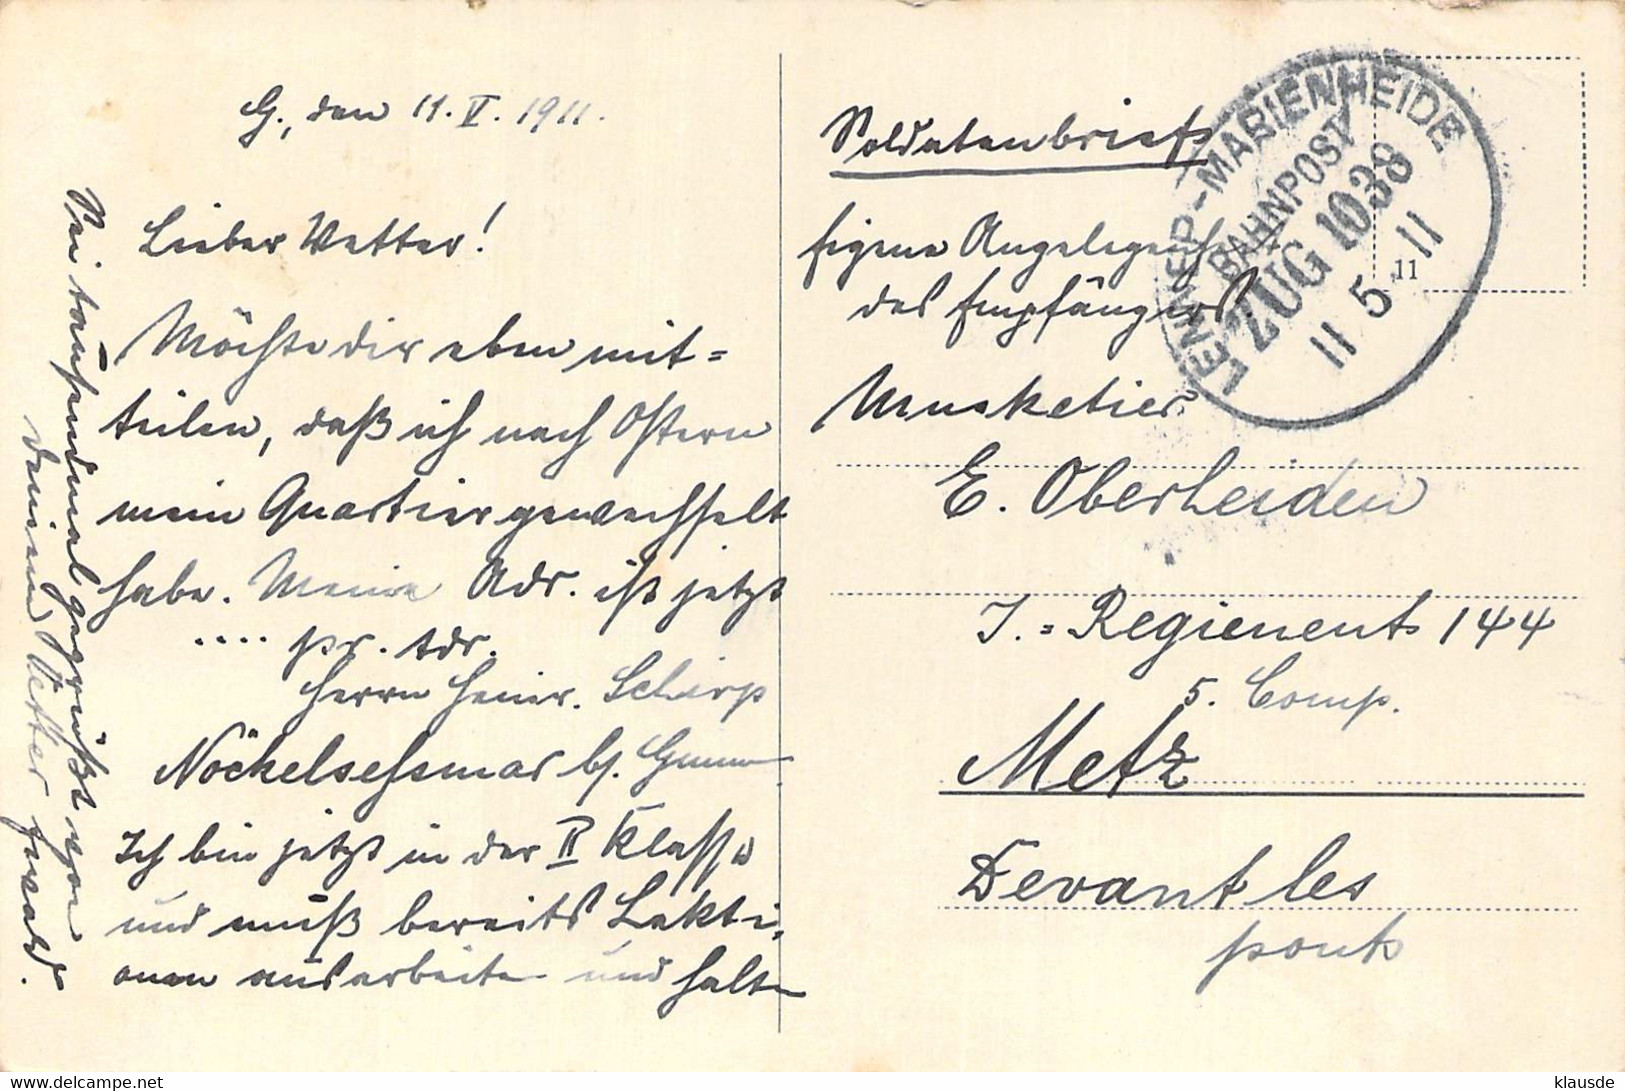 G., den 11. V. 1911.
Lieber Vetter!
Möchte dir eben mit=
teilen, daß ich nach Ostern
mein Quartier gewechselt
habe. Meine Adr. ist jetzt
.... pr. Adr.
Herrn Heinr. Schirp
Nöckelsessmar b/. Gumm
Ich bin jetzt in der II Klasse
und muß bereits Lekti,
onen ausarbeiten und halten
Sei tausendmal gegrüßt von
deinem Vetter Ewald.
Soldatenbrief
Eigene Angelegenheit
des Empfängers
Musketier
E. Oberheiden
I.=Regienent 144
5. Comp.
Metz
Devant les
ponts
LENNEP-MARIENHEIDE
BAHNPOST
ZUG 1038
11 5 11
11
klausde